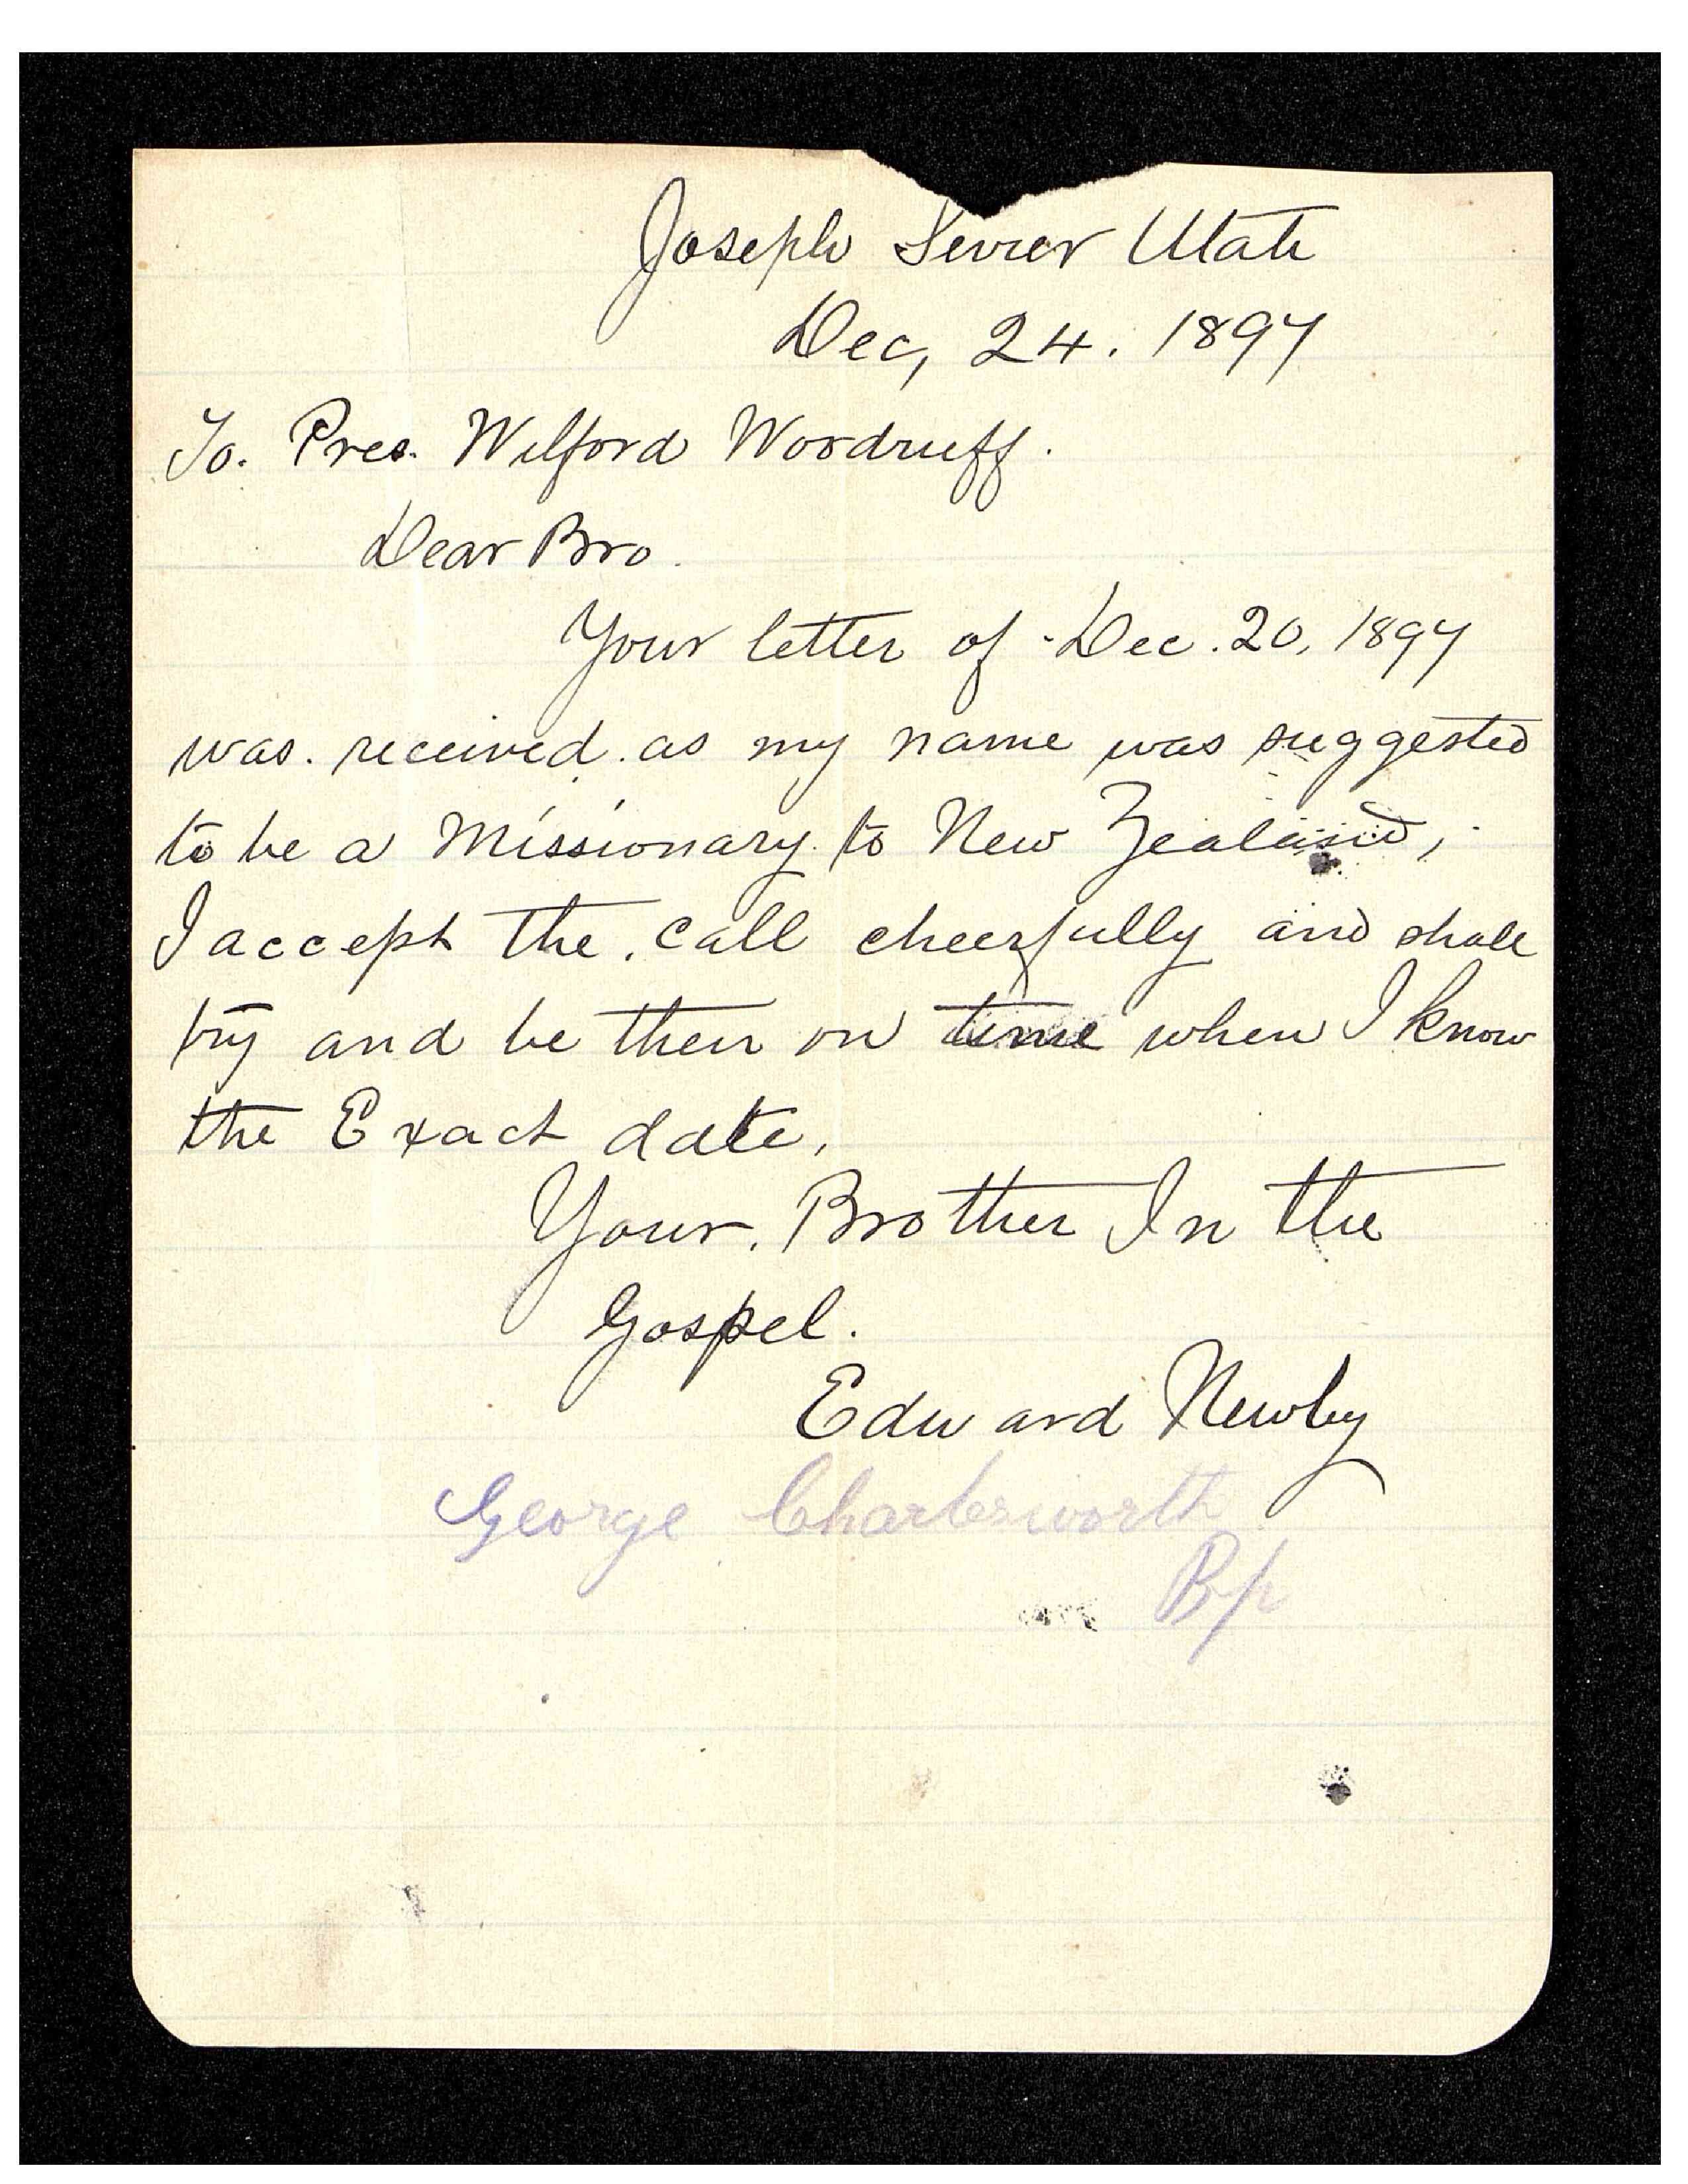 Joseph Sevier Utah
Dec, 24. 1897
To. Pres. Wilford Woodruff.
Dear Bro.
Your letter of Dec. 20, 1897
was. received. as my name was suggested
to be a Missionary. to New Zealand,
I accept the. call cheerfully and shall
try and be then on time when I know
the Exact date,
Your. Brother In the
Gospel.
Edward Newby
George Charlesworth
Bp